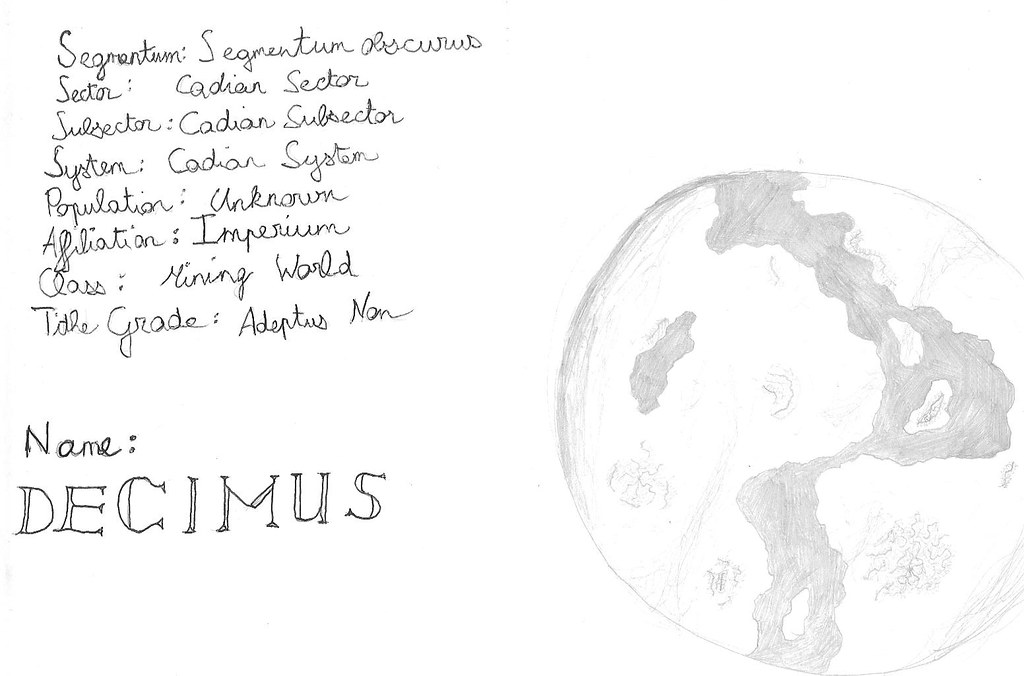 Segmentum: Segmentum obscurus
Sector: Cadian Sector
Subsector: Cadian Subsector
System: Cadian System
Population: Unknown
Affiliation: Imperium
Class: Mining World
Tithe Grade: Adeptus Non
Name:
DECIMUS